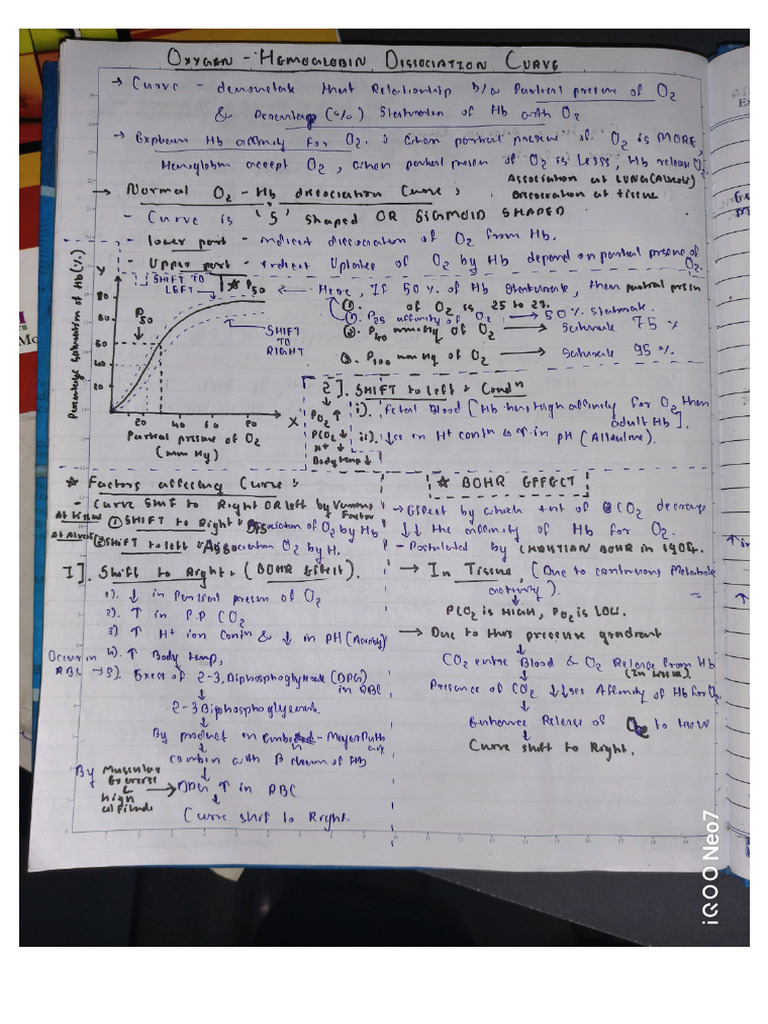 OXYGEN - HEMOGLOBIN DISSOCIATION CURVE
→ Curve - demonstrate that Relationship b/w Partial pressure of O2
& Percentage (%) Saturation of Hb with O2
→ Explain Hb affinity for O2. : when partial pressure of O2 is MORE,
Hemoglobin accept O2, when partial pressure of O2 is Less, Hb release O2
Association at LUNG (Alveoli)
→ Normal O2 - Hb dissociation Curve :
Dissociation at tissue
- Curve is 'S' shaped OR SIGMOID SHAPED
- lower part - indicat dissociation of O2 from Hb.
- Upper part - indicat Uptake of O2 by Hb depend on partial pressure of O2.
Percentage saturation of Hb (%)
Y
SHIFT TO LEFT
P50
80
60
40
20
SHIFT TO RIGHT
20 40 60 80
X
Partial pressure of O2
(mm Hg)
★ P50 ← Here, If 50 % of Hb Saturate, then partial pressure
of O2 is 25 to 27.
①. P25 affinity of O2 → 50 % Saturate.
②. P40 mmHg of O2 → Saturate 75 %
③. P100 mmHg of O2 → Saturate 95 %.
2]. SHIFT to left : Condn
PO2 ↑
PCO2 ↓
H+ ↓
Body temp ↓
i). Fetal Blood [Hb has High affinity for O2 than
adult Hb].
ii). ↓se in H+ contn & ↑ in pH (Alkaline).
★ Factors affecting Curve :
- Curve Shift to Right OR left by Various Factor
At tissue ① SHIFT to Right : Dissociation of O2 by Hb
At Alveoli ② SHIFT to left : Association O2 by H.
1]. Shift to Right. (BOHR Effect).
1). ↓ in Partial pressure of O2
2). ↑ in P.P CO2
3) ↑ H+ ion Contn & ↓ in pH (Acidity)
4). ↑ Body temp,
Occur in RBC → 5). Excess of 2-3, Biphosphoglycerate (DPG) in RBC
↓
2-3 Biphosphoglycerate.
↓
By product in Embden-Meyerhof
↓
combin with β chain of Hb
↓
By Muscular Exercise & High altitude → DPG ↑ in RBC
↓
Curve shift to Right.
★ BOHR EFFECT
→ Effect by which of CO2 decrease
↓↓ the affinity of Hb for O2.
- Postulated by CHRISTIAN BOHR in 1904.
→ In Tissue, (Due to continuous Metabolic
activity).
↓
PCO2 is HIGH, PO2 is LOW.
→ Due to this pressure gradient
↓
CO2 enter Blood & O2 Release from Hb
(In tissue).
↓
Presence of CO2 ↓↓ses Affinity of Hb for O2
↓
Enhance Release of O2 to tissue
↓
Curve shift to Right.
iQOO Neo7